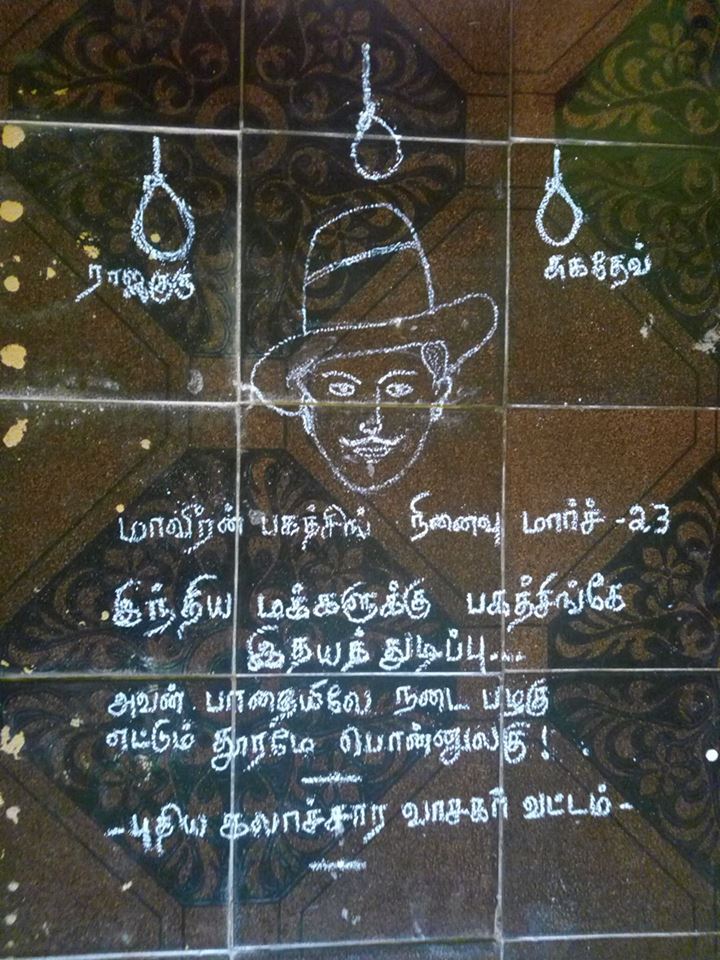 ராஜகுரு
சுகதேவ்
மாவீரன் பகத்சிங் நினைவு மார்ச் -23
இந்திய மக்களுக்கு பகத்சிங்கே
இதயத் துடிப்பு...
அவன் பாதையிலே நடை பழகு
எட்டும் தூரமே பொன்னுலகு!
-புதிய கலாச்சார வாசகர் வட்டம்-